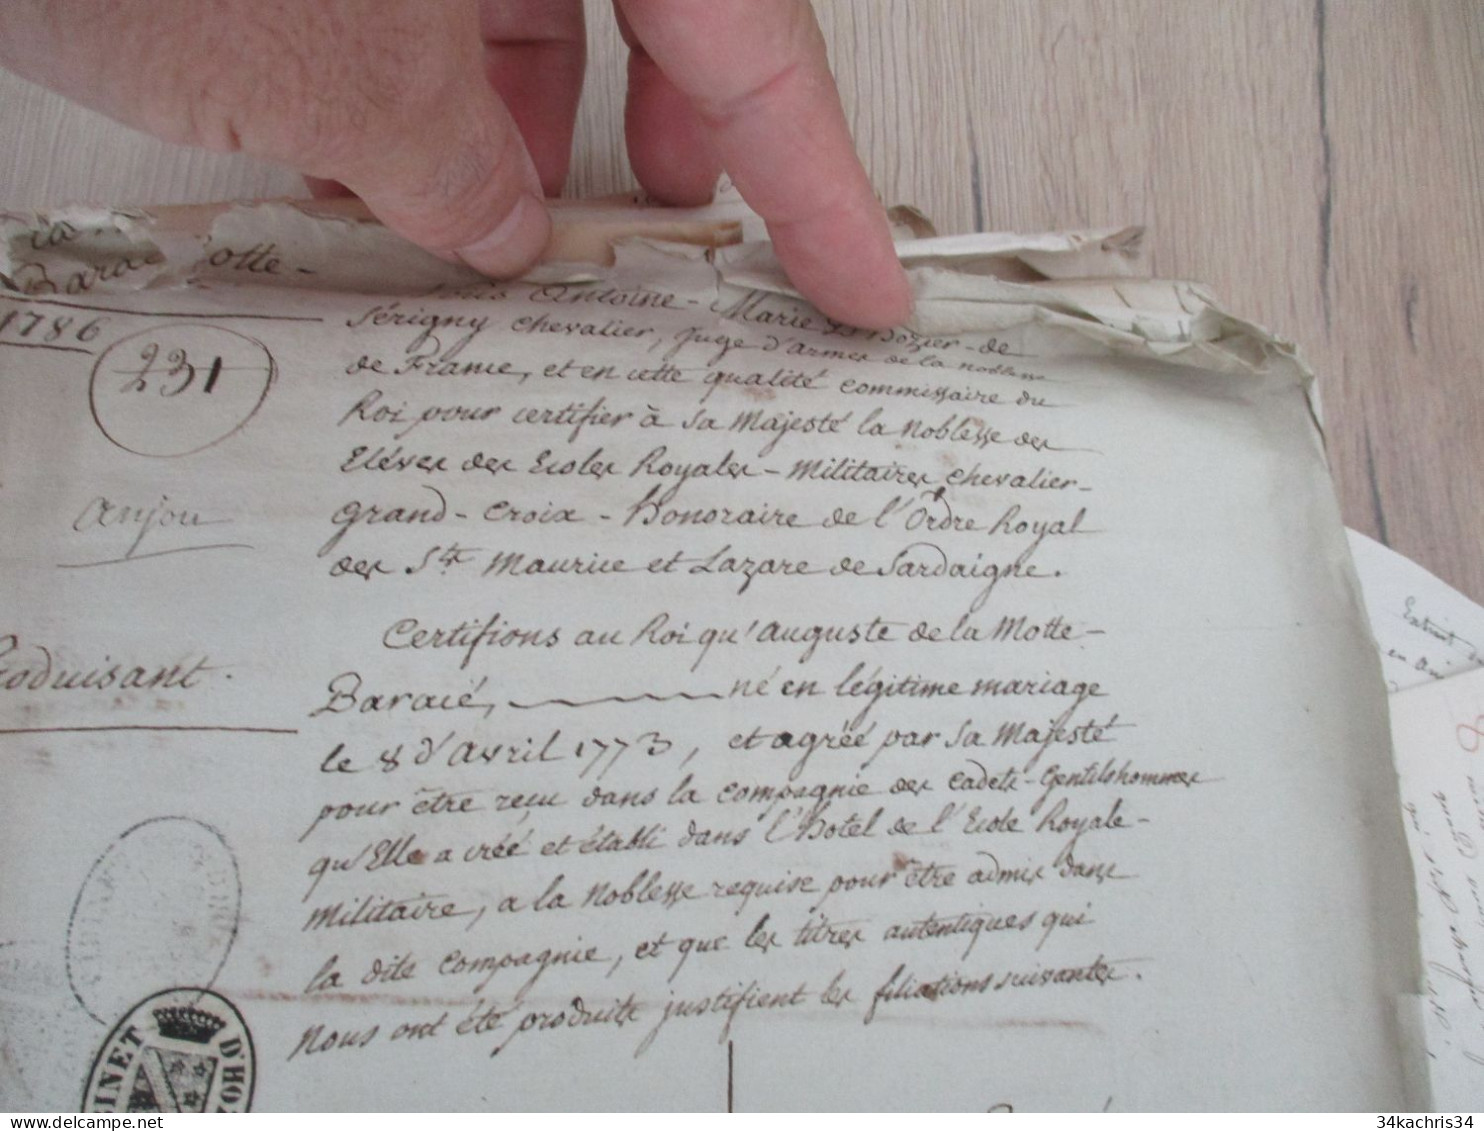 Barai otte
1786
231
anjou
Produisant.
Antoine - Marie D'Hozier - de
Sérigny chevalier, juge d'armes de la noblesse
de France, et en cette qualité commissaire du
Roi pour certifier à Sa Majesté la Noblesse des
Elèves des Ecoles Royales - Militaires, chevalier -
grand - croix - honoraire de l'Ordre Royal
des Sts. Maurice et Lazare de Sardaigne.
Certifions au Roi qu'auguste de la Motte -
Baraié, né en légitime mariage
le 8 d'avril 1773, et agréé par Sa Majesté
pour être reçu dans la compagnie des cadets - gentilshommes
qu'Elle a créé et établi dans l'hotel de l'Ecole Royale -
Militaire, a la Noblesse requise pour être admis dans
la dite compagnie, et que les titres autentiques qui
Nous ont été produits justifient les filiations suivantes.
CABINET D'HOZ
Extrait
34kachris34